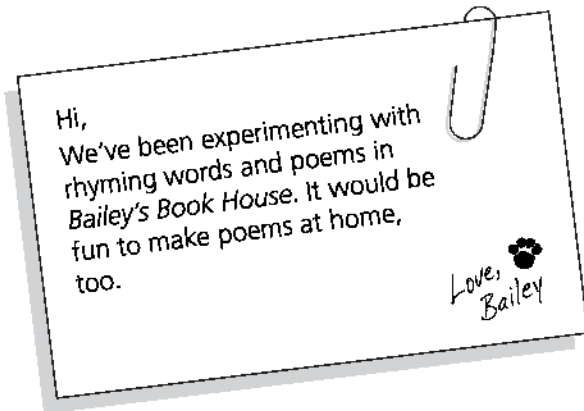 Hi,
We've been experimenting with
rhyming words and poems in
Bailey's Book House. It would be
fun to make poems at home,
too.
Love,
Bailey